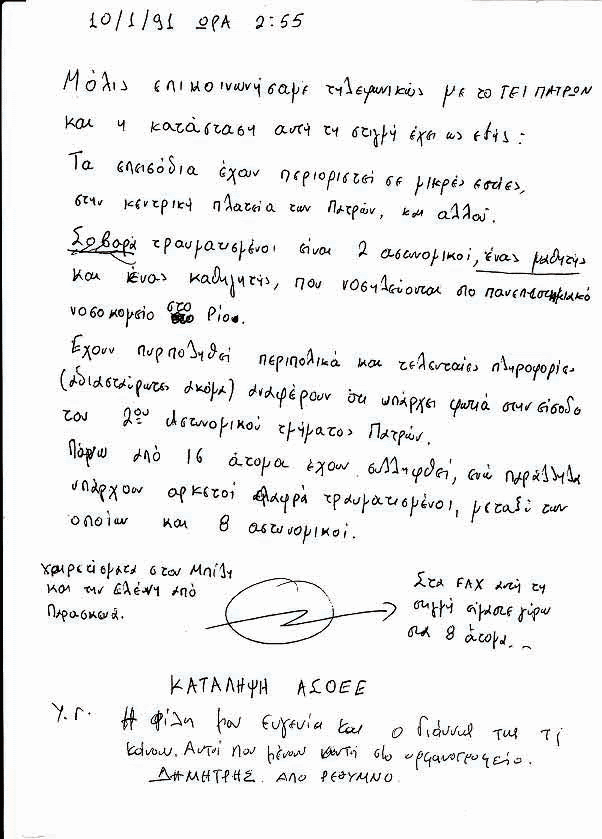 10/1/91 ΩΡΑ 2:55
Μόλις επικοινωνήσαμε τηλεφωνικώς με το ΤΕΙ ΠΑΤΡΩΝ
και η κατάσταση αυτή τη στιγμή έχει ως εξής:
Τα επεισόδια έχουν περιοριστεί σε μικρές εστίες,
στην κεντρική πλατεία των Πατρών, και αλλού.
Σοβαρά τραυματισμένοι είναι 2 αστυνομικοί, ένας μαθητής
και ένας καθηγητής, που νοσηλεύονται στο πανεπιστημιακό
νοσοκομείο στο Ρίο.
Έχουν πυρποληθεί περιπολικά και τελευταίες πληροφορίες
(αδιασταύρωτες ακόμα) αναφέρουν ότι υπάρχει φωτιά στην είσοδο
του 2ου Αστυνομικού τμήματος Πατρών.
Πάνω από 16 άτομα έχουν συλληφθεί, ενώ παράλληλα
υπάρχουν αρκετοί ελαφρά τραυματισμένοι, μεταξύ των
οποίων και 8 αστυνομικοί.
Χαιρετίσματα στον Μπίλη
και την Ελένη από
Παρασκευά.
Στα FAX αυτή τη
στιγμή είμαστε γύρω
στα 8 άτομα.
ΚΑΤΑΛΗΨΗ ΑΣΟΕΕ
Υ.Γ. Η φίλη μου Ευγενία και ο Γιάννης της τι
κάνουν. Αυτοί που μένουν κοντά στο
ΔΗΜΗΤΡΗΣ ΑΠΟ ΡΕΘΥΜΝΟ.